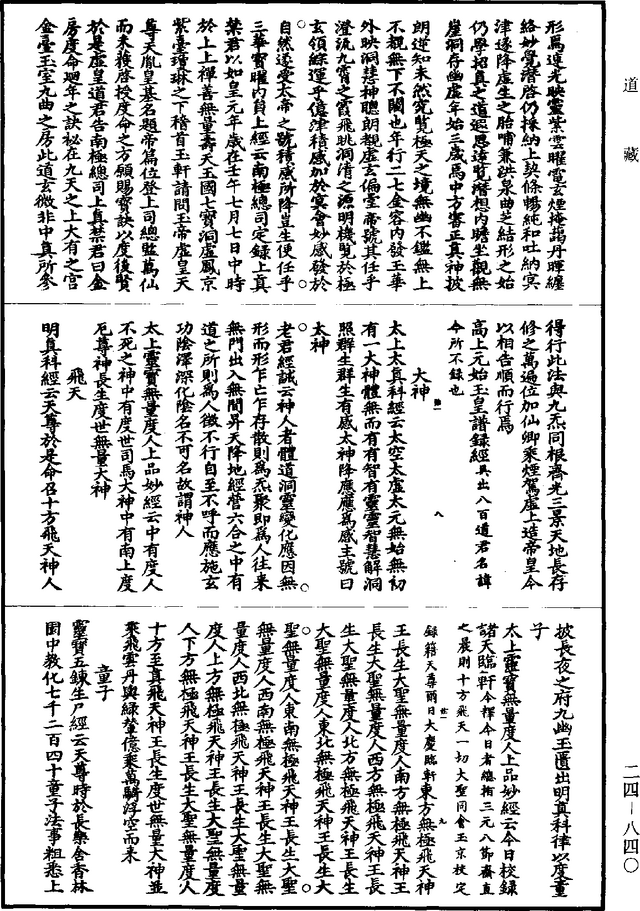 道藏
形爲連光映靈紫雲曜電玄煙掩藹丹暉纏
絡妙覺潛啓仍採納上契條暢純和吐納冥
津遂降虛生之胎哺兼洪泉曲芝結形之始
仍學招真之道遐思遠覽潛想内瞻坐觀無
崖洞存幽虛年始三歲爲中方審正真神披
朗逆知未然究覽極天之境無幽不鑑無上
不覩無下不闚也年行二七金容内發玉華
外映洞慧神聰朗覩虛玄偏臺帝號其任乎
澄流九霄之霞飛眺洞清之源明機覽於極
玄領綜運乎億津積感加於冥會妙感發於
自然遂受太帝之號積感所降豈生便任乎
三華寶曜内真上經云南極總司定錄上真
禁君以如皇元年歲在壬午七月七日中時
於上上禪善無量壽天玉國七寶洞虛鳳京
紫臺瓊琳之下稽首玉軒請問玉帝虛皇天
尊天胤皇基名題帝篇位登上司總監萬仙
而未獲啓授度命之方願賜寶訣以度後賢
於是虛皇道君告南極總司上真禁君曰金
房度命迴年之訣祕在九天之上大有之宮
金臺玉室九曲之房此道玄微非中真所參
得行此法與九炁同根齊光三景天地長存
修之萬遍位加仙卿乘煙駕虛上造帝皇今
以相告順而行焉
高上元始玉皇譜錄經具出八百道君名諱
今所不錄也
大神
太上太真科經云太空太虛太元無始無初
有一大神體無而有有智有靈靈智慧解洞
照群生群生有感太神降應應爲感主號曰
太神
老君經誡云神人者體道洞靈變化應因無
形而形乍亡乍存散則爲炁聚即爲人往來
無門出入無間昇天降地經營六合之中有
道之所則爲人徵不行自至不呼而應施玄
功陰澤深化陰名不可名故謂神人
太上靈寶無量度人上品妙經云中有度人
不死之神中有度世司馬大神中有南上度
厄尊神長生度世無量大神
飛天
明真科經云天尊於是命召十方飛天神人
披長夜之府九幽玉匱出明真科律以度童
子
太上靈寶無量度人上品妙經云今日校錄
諸天臨軒今釋今日者總指三元八節齋直
之晨則十方飛天一切大聖同會玉京校定
錄籍天尊爾日大慶臨軒東方無極飛天神
王長生大聖無量度人南方無極飛天神王
長生大聖無量度人西方無極飛天神王長
生大聖無量度人北方無極飛天神王長生
大聖無量度人東北無極飛天神王長生大
聖無量度人東南無極飛天神王長生大聖
無量度人西南無極飛天神王長生大聖無
量度人西北無極飛天神王長生大聖無量
度人上方無極飛天神王長生大聖無量度
人下方無極飛天神王長生大聖無量度人
十方至真飛天神王長生度世無量大神並
乘飛雲丹輿綠輦億乘萬騎浮空而來
童子
靈寶五鍊生尸經云天尊時於長樂舍香林
園中教化七千二百四十童子法事粗悉上
二四-八四〇